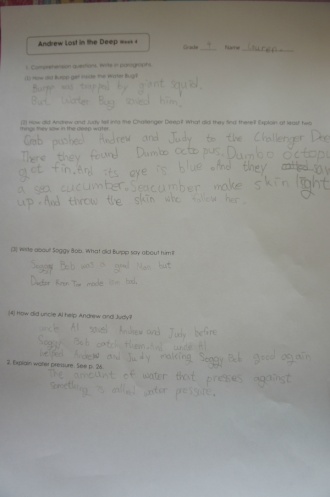 Andrew Lost In the Deep Week 4
Grade 4 Name
1. Comprehension questions. Write in paragraphs.
(1) How did Burpp get inside the Water Bug?
Burpp was trapped by giant squid.
But Water Bug saved him.
(2) How did Andrew and Judy fall into the Challenger Deep? What did they find there? Explain at least two
things they saw in the deep water.
Crab pushed Andrew and Judy to the Challenger Deep
There they found Dumbo octopus. Dumbo octopu
got fin. And its eye is blue. And they saw
a sea cucumber. Seacumber make skin light
up. And throw the skin who her.
(3) Write about Soggy Bob. What did Burpp say about him?
Soggy Bob was a good but
Doctor made him bad.
(4) How did uncle Al help Andrew and Judy?
uncle Al saved Andrew and Judy before
Soggy Bob
helped Andrew and Judy making Soggy Bob good again
2. Explain water pressure. See p. 26.
The amount of water that presses against
something is called water pressure.